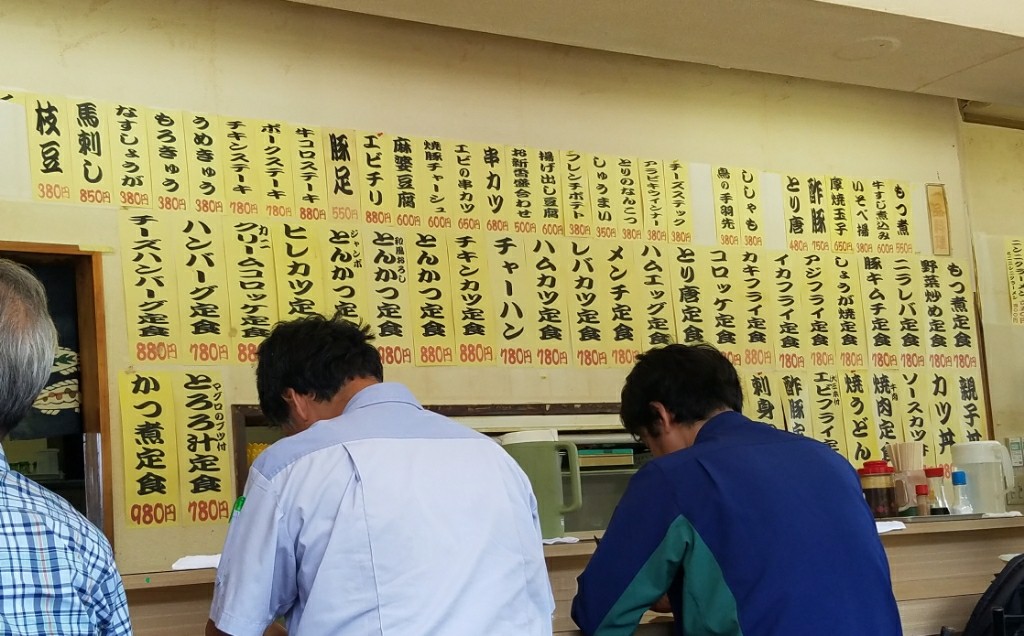 もつ煮 550円
牛すじ煮込み 600円
いそべ揚 380円
厚焼玉子 650円
酢豚 750円
とり唐 480円
ししゃも 380円
鳥の手羽先 380円
チーズスティック 380円
アラビキウインナー 380円
とりのなんこつ 380円
しゅうまい 350円
フレンチポテト 380円
揚げ出し豆腐 600円
お新香盛合わせ 500円
串カツ 680円
エビの串カツ 650円
焼豚チャーシュ 600円
麻婆豆腐 600円
エビチリ 880円
豚足 550円
牛コロステーキ 880円
ポークステーキ 780円
チキンステーキ 780円
うめきゅう 380円
もろきゅう 380円
なすしょうが 380円
馬刺し 850円
枝豆 380円
もつ煮定食 780円
野菜炒め定食 780円
ニラレバ定食 780円
豚キムチ定食 780円
しょうが焼定食 780円
アジフライ定食 780円
イカフライ定食 780円
カキフライ定食 880円
コロッケ定食 780円
とり唐定食
ハムエッグ定食
メンチ定食 780円
レバカツ定食 780円
ハムカツ定食 780円
チャーハン 780円
チキンカツ定食 880円
とんかつ定食 880円
和風おろし とんかつ定食 980円
ジャンボ とんかつ定食
ヒレカツ定食
カニクリームコロッケ定食 880円
ハンバーグ定食 780円
チーズハンバーグ定食 880円
親子丼
カツ丼
ソースカツ丼
焼肉定食
焼うどん
エビフライ定食
酢豚定
刺身
マグロのブツ付 とろろ汁定食 780円
かつ煮定食 980円